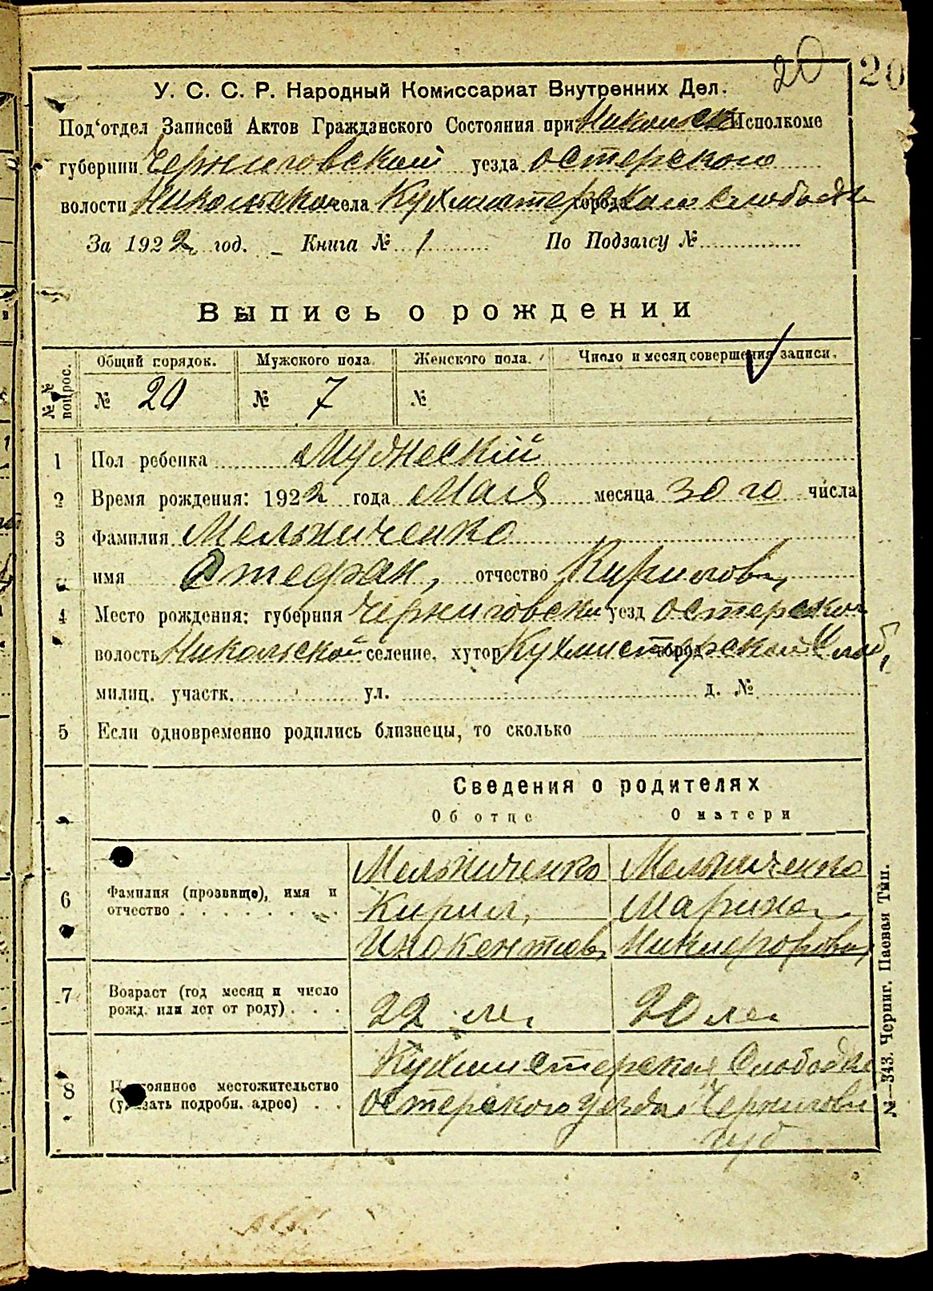 20 20
У. С. С. Р. Народный Комиссариат Внутренних Дел.
Под'отдел Записей Актов Гражданского Состояния при Никольск Исполкоме
губернии Черниговской уезда Остерского
волости Никольской села Кухмистерской города Слободы
За 1922 год. Книга № 1 По Подзагсу №
Выпись о рождении
№№ вопрос. Общий порядок. Мужского пола. Женского пола. Число и месяц совершения записи.
№ 20 № 7 №
1 Пол ребенка Мужеский
2 Время рождения: 1922 года Мая месяца 30 го числа
3 Фамилия Мельниченко
имя Стефан, отчество Кирилов
4 Место рождения: губерния Черниговски уезд Остерской
волость Никольской селение, хутор Кухмистерской город Слоб,
милиц. участк. ул. д. №
5 Если одновременно родились близнецы, то сколько
Сведения о родителях
Об отце О матери
6 Фамилия (прозвище), имя и отчество Мельниченко Кирил, Инокентов Мельниченко Марина Никифорова
7 Возраст (год месяц и число рожд. или лет от роду) 22 ле 20 ле
8 Постоянное местожительство (указать подробн. адрес) Кухмистерская Слободка
Остерского уезда Чернигови
губ
№—343. Черниг. Паевая Тип.